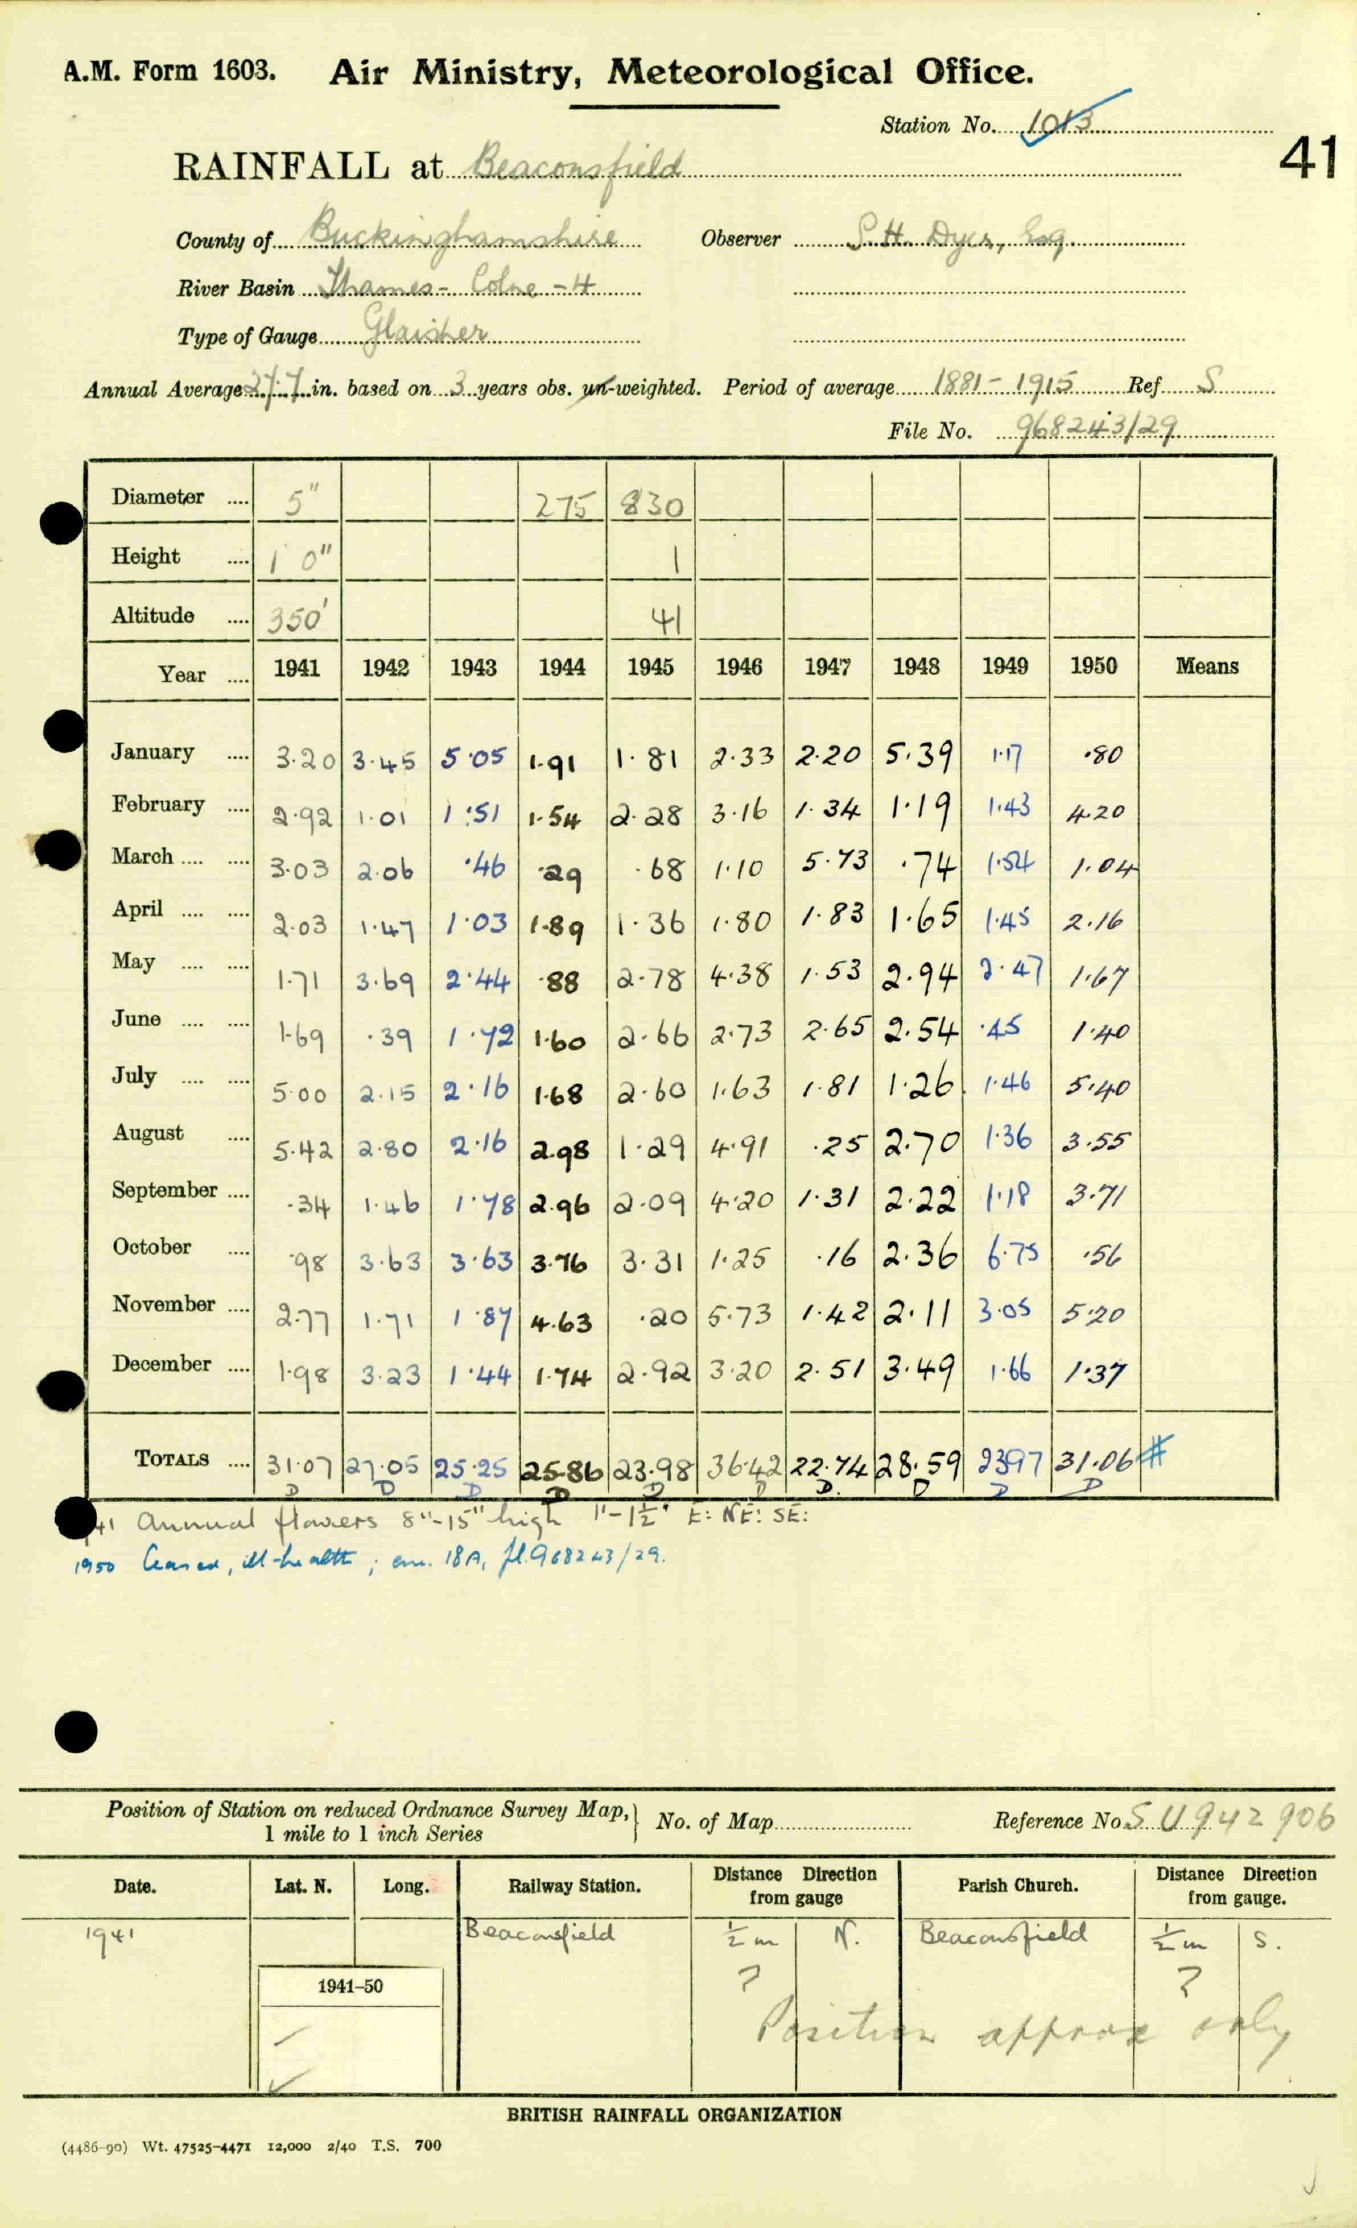 A.M. Form 1603. Air Ministry, Meteorological Office.
Station No. 1013
41
RAINFALL at Beaconsfield
County of Buckinghamshire Observer S.H. Dyer, Esq.
River Basin Thames - Colne - 4
Type of Gauge Glaisher
Annual Average 27.7 in. based on 3 years obs. un-weighted. Period of average 1881 - 1915 Ref S
File No. 968243/29
Diameter .... 5" 275 830
Height .... 1 0" 1
Altitude .... 350' 41
Year .... 1941 1942 1943 1944 1945 1946 1947 1948 1949 1950 Means
January .... 3.20 3.45 5.05 1.91 1.81 2.33 2.20 5.39 1.17 .80
February .... 2.92 1.01 1.51 1.54 2.28 3.16 1.34 1.19 1.43 4.20
March .... .... 3.03 2.06 .46 .29 .68 1.10 5.73 .74 1.54 1.04
April .... .... 2.03 1.47 1.03 1.89 1.36 1.80 1.83 1.65 1.45 2.16
May .... .... 1.71 3.69 2.44 .88 2.78 4.38 1.53 2.94 2.47 1.67
June .... .... 1.69 .39 1.72 1.60 2.66 2.73 2.65 2.54 .45 1.40
July .... .... 5.00 2.15 2.16 1.68 2.60 1.63 1.81 1.26 1.46 5.40
August .... 5.42 2.80 2.16 2.98 1.29 4.91 .25 2.70 1.36 3.55
September .... .34 1.46 1.78 2.96 2.09 4.20 1.31 2.22 1.18 3.71
October .... .98 3.63 3.63 3.76 3.31 1.25 .16 2.36 6.75 .56
November .... 2.77 1.71 1.87 4.63 .20 5.73 1.42 2.11 3.05 5.20
December .... 1.98 3.23 1.44 1.74 2.92 3.20 2.51 3.49 1.66 1.37
TOTALS .... 31.07 27.05 25.25 25.86 23.98 36.42 22.74 28.59 23.97 31.06 #
D D D D D D D. D D D
41 Annual flowers 8"-15" high 1"-1½" E: NE: SE:
1950 Ceased, ill-health; em. 18A, fl. 968243/29.
Position of Station on reduced Ordnance Survey Map, } No. of Map Reference No. SU 942 906
1 mile to 1 inch Series
Date. Lat. N. Long. Railway Station. Distance Direction from gauge Parish Church. Distance Direction from gauge.
1941 Beaconsfield ½ m N. Beaconsfield ½ m S.
? ?
1941-50
Position approx only
BRITISH RAINFALL ORGANIZATION
(4486-90) Wt. 47525-4471 12,000 2/40 T.S. 700